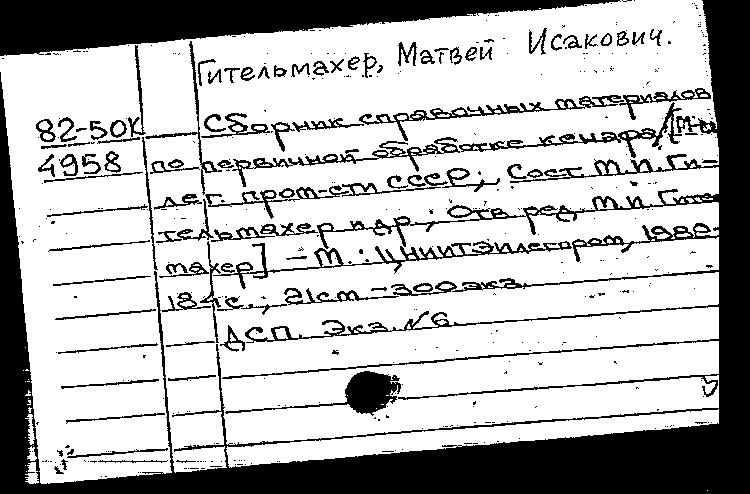 Гительмахер, Матвей Исакович.
82-50К Сборник справочных материалов
4958 по первичной обработке кенафа/[М-во
лег. пром-сти СССР; Сост М.И.Ги-
тельмахер и др; Отв ред М.И. Гите
махер] – М.: ЦНИИТЭИлегпром, 1980-
184с.; 21см – 300 экз.
ДСП. Экз. №6.